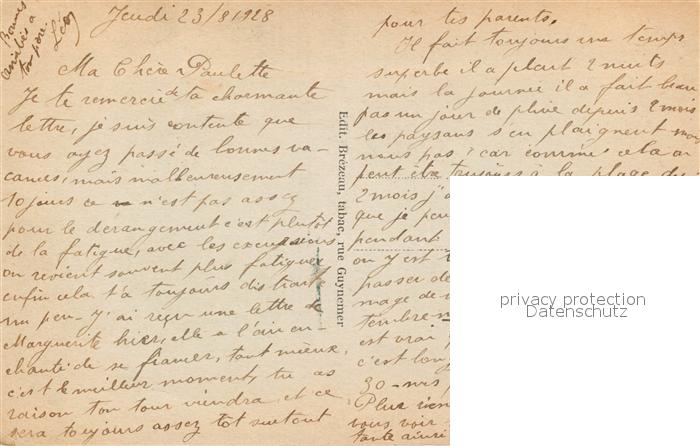 Jeudi 23/8 1928
Bonnes
amitiés a
ton père.
Léo
Ma Chère Paulette
Je te remercie de ta charmante
lettre, je suis contente que
vous ayez passé de bonnes va-
cances, mais malheureusement
tojours ce n'est pas assez
pour le derangement c'est plutôt
de la fatigue, avec les excursions
on revient souvent plus fatiguée
enfin cela t'a toujours distraite
un peu - J'ai reçu une lettre de
Marguerite hier, elle a l'air en-
chanté de se fiancer, tant mieux,
c'est le meilleur moment, tu as
raison ton tour viendra et ce
sera toujours assez tot surtout
Edit. Brézeau, tabac, rue Guynemer
pour tes parents.
Il fait toujours une temps
superbe il a plut 2 nuits
mais la journée il a fait beau
pas un jour de pluie depuis 2 mois
les paysans s'en plaignent mais
nous pas! car comme cela on
peut être toujours à la plage de
2 mois j'a
que je peu
pendant
on y est
passer de
mage de
tembre
est vrai
c'est lon
30 - mes
Plus rien
vous voir
tante ainsi
privacy protection
Datenschutz